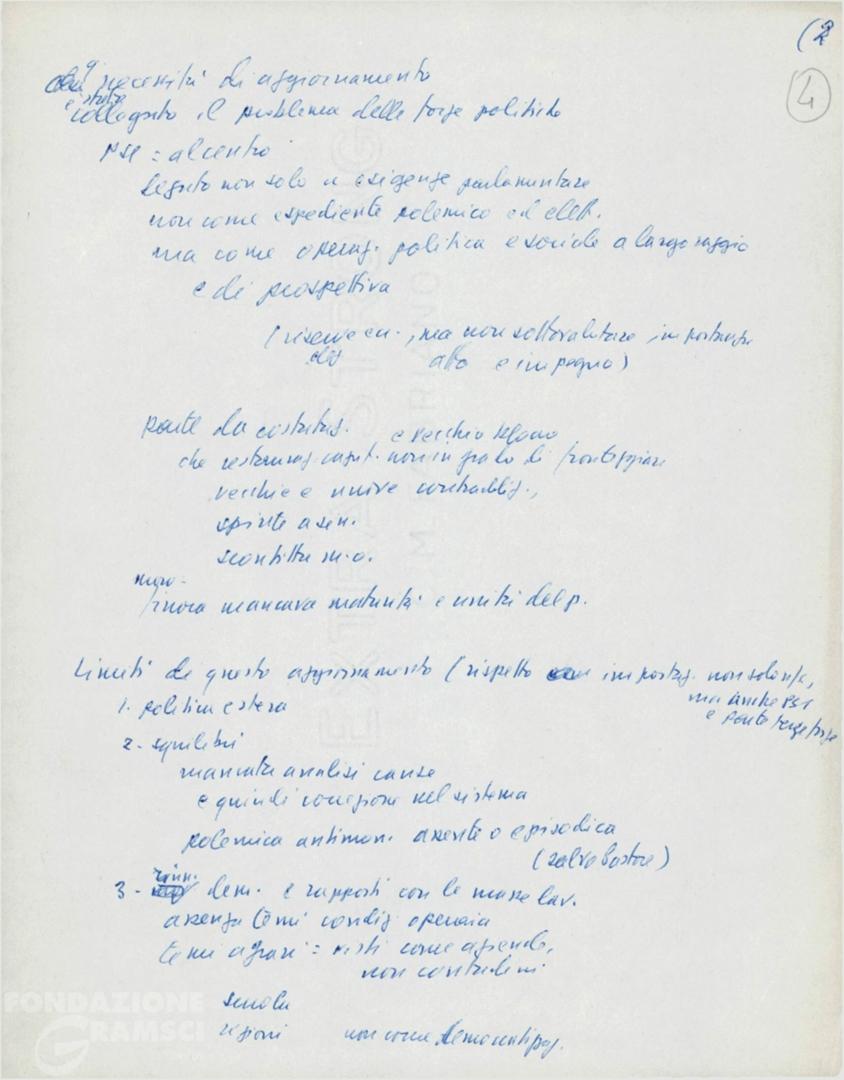 (2
4
a necessità di aggiornamento
è stato
collegato il problema delle forze politiche
PSI = al centro
legato non solo a esigenze parlamentare
non come espediente polemico ed elett.
ma come operaz. politica e sociale a largo raggio
e di prospettiva
(riserve cu., ma non sottovalutare importanza
atto e impegno)
parte da costataz. e vecchio
che restauraz. capit. non in grado di fronteggiare
vecchie e nuove contraddiz.,
spinte a sin.
sconfitta m.o.
finora mancava maturità e unità del p.
Limiti di questo aggiornamento (rispetto importaz. non solo
ma anche PSI
e parte terze forze
1. politica estera
2 - squilibri
mancata analisi cause
e quindi correzione nel sistema
polemica antimon. assente o episodica
(salvo Pastore)
3 - rinn. dem. e rapporti con le masse lav.
assenza temi condiz operaia
temi agrari = visti come aziende,
non contadini
scuola
regioni non come
FONDAZIONE
GRAMSCI